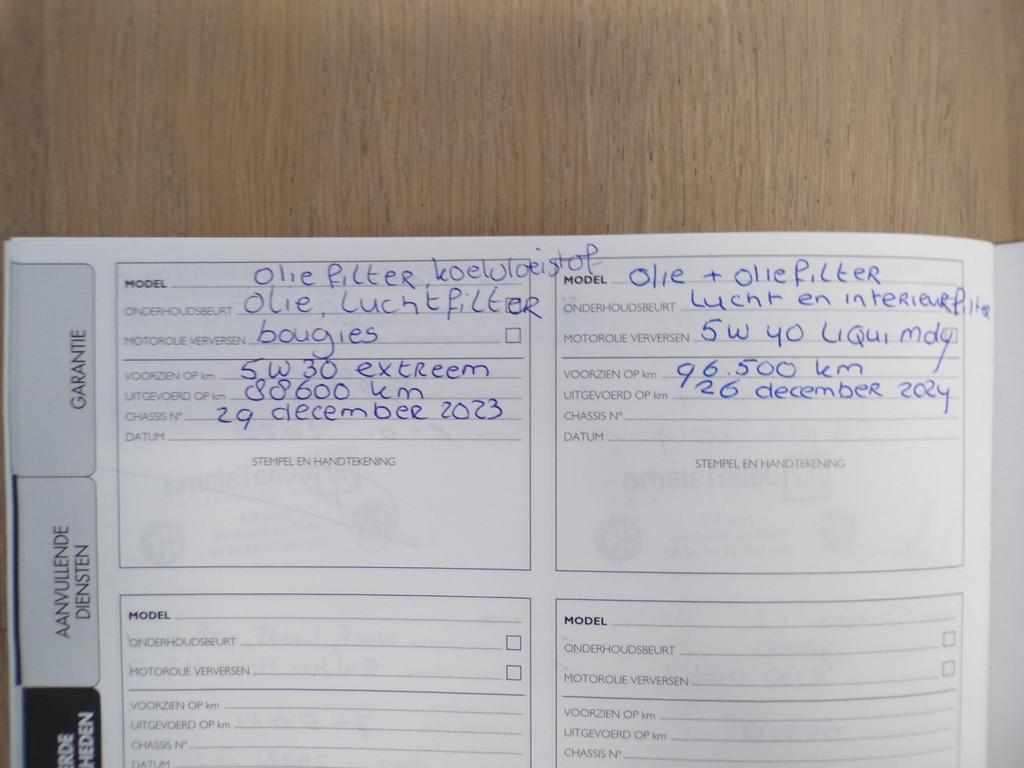 GARANTIE
AANVULLENDE
DIENSTEN
ERDE
HEDEN
MODEL Olie filter, koelvloeistof
ONDERHOUDSBEURT Olie, Luchtfilter
MOTOROLIE VERVERSEN bougies
VOORZIEN OP km 5W30 extreem
UITGEVOERD OP km 88600 km
CHASSIS N° 29 december 2023
DATUM
STEMPEL EN HANDTEKENING
MODEL Olie + oliefilter
ONDERHOUDSBEURT Lucht en interieurfilter
MOTOROLIE VERVERSEN 5W 40 Liqui moly
VOORZIEN OP km 96.500 km
UITGEVOERD OP km 26 december 2024
CHASSIS N°
DATUM
STEMPEL EN HANDTEKENING
MODEL
ONDERHOUDSBEURT
MOTOROLIE VERVERSEN
VOORZIEN OP km
UITGEVOERD OP km
CHASSIS N°
DATUM
MODEL
ONDERHOUDSBEURT
MOTOROLIE VERVERSEN
VOORZIEN OP km
UITGEVOERD OP km
CHASSIS N°